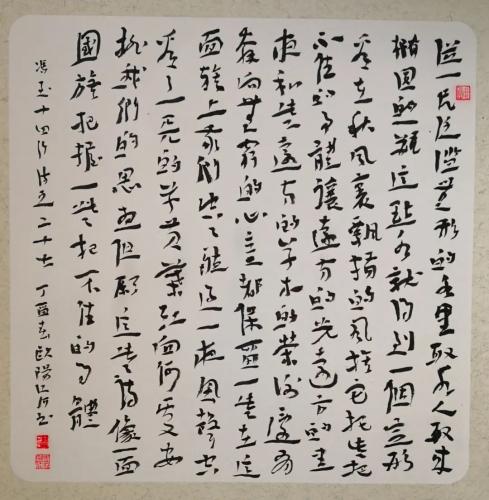 從一片泛濫無形的水里取水人取來
橢圓的一瓶這點水就得到一個定形
看在秋風裏飄揚的風旗它把住些把
不住的事體讓遠方的光遠方的黑
夜和些遠方的草木的榮謝還有
奔向無窮的心意都保留一些在這
面旗上我們空空聽過一夜風聲空
看了一天的草黃葉紅向何處安
排我們的思想但願這些詩像一面
風旗把握一些把不住的事體
馮至十四行詩之二十七 丁酉春歐陽江河書